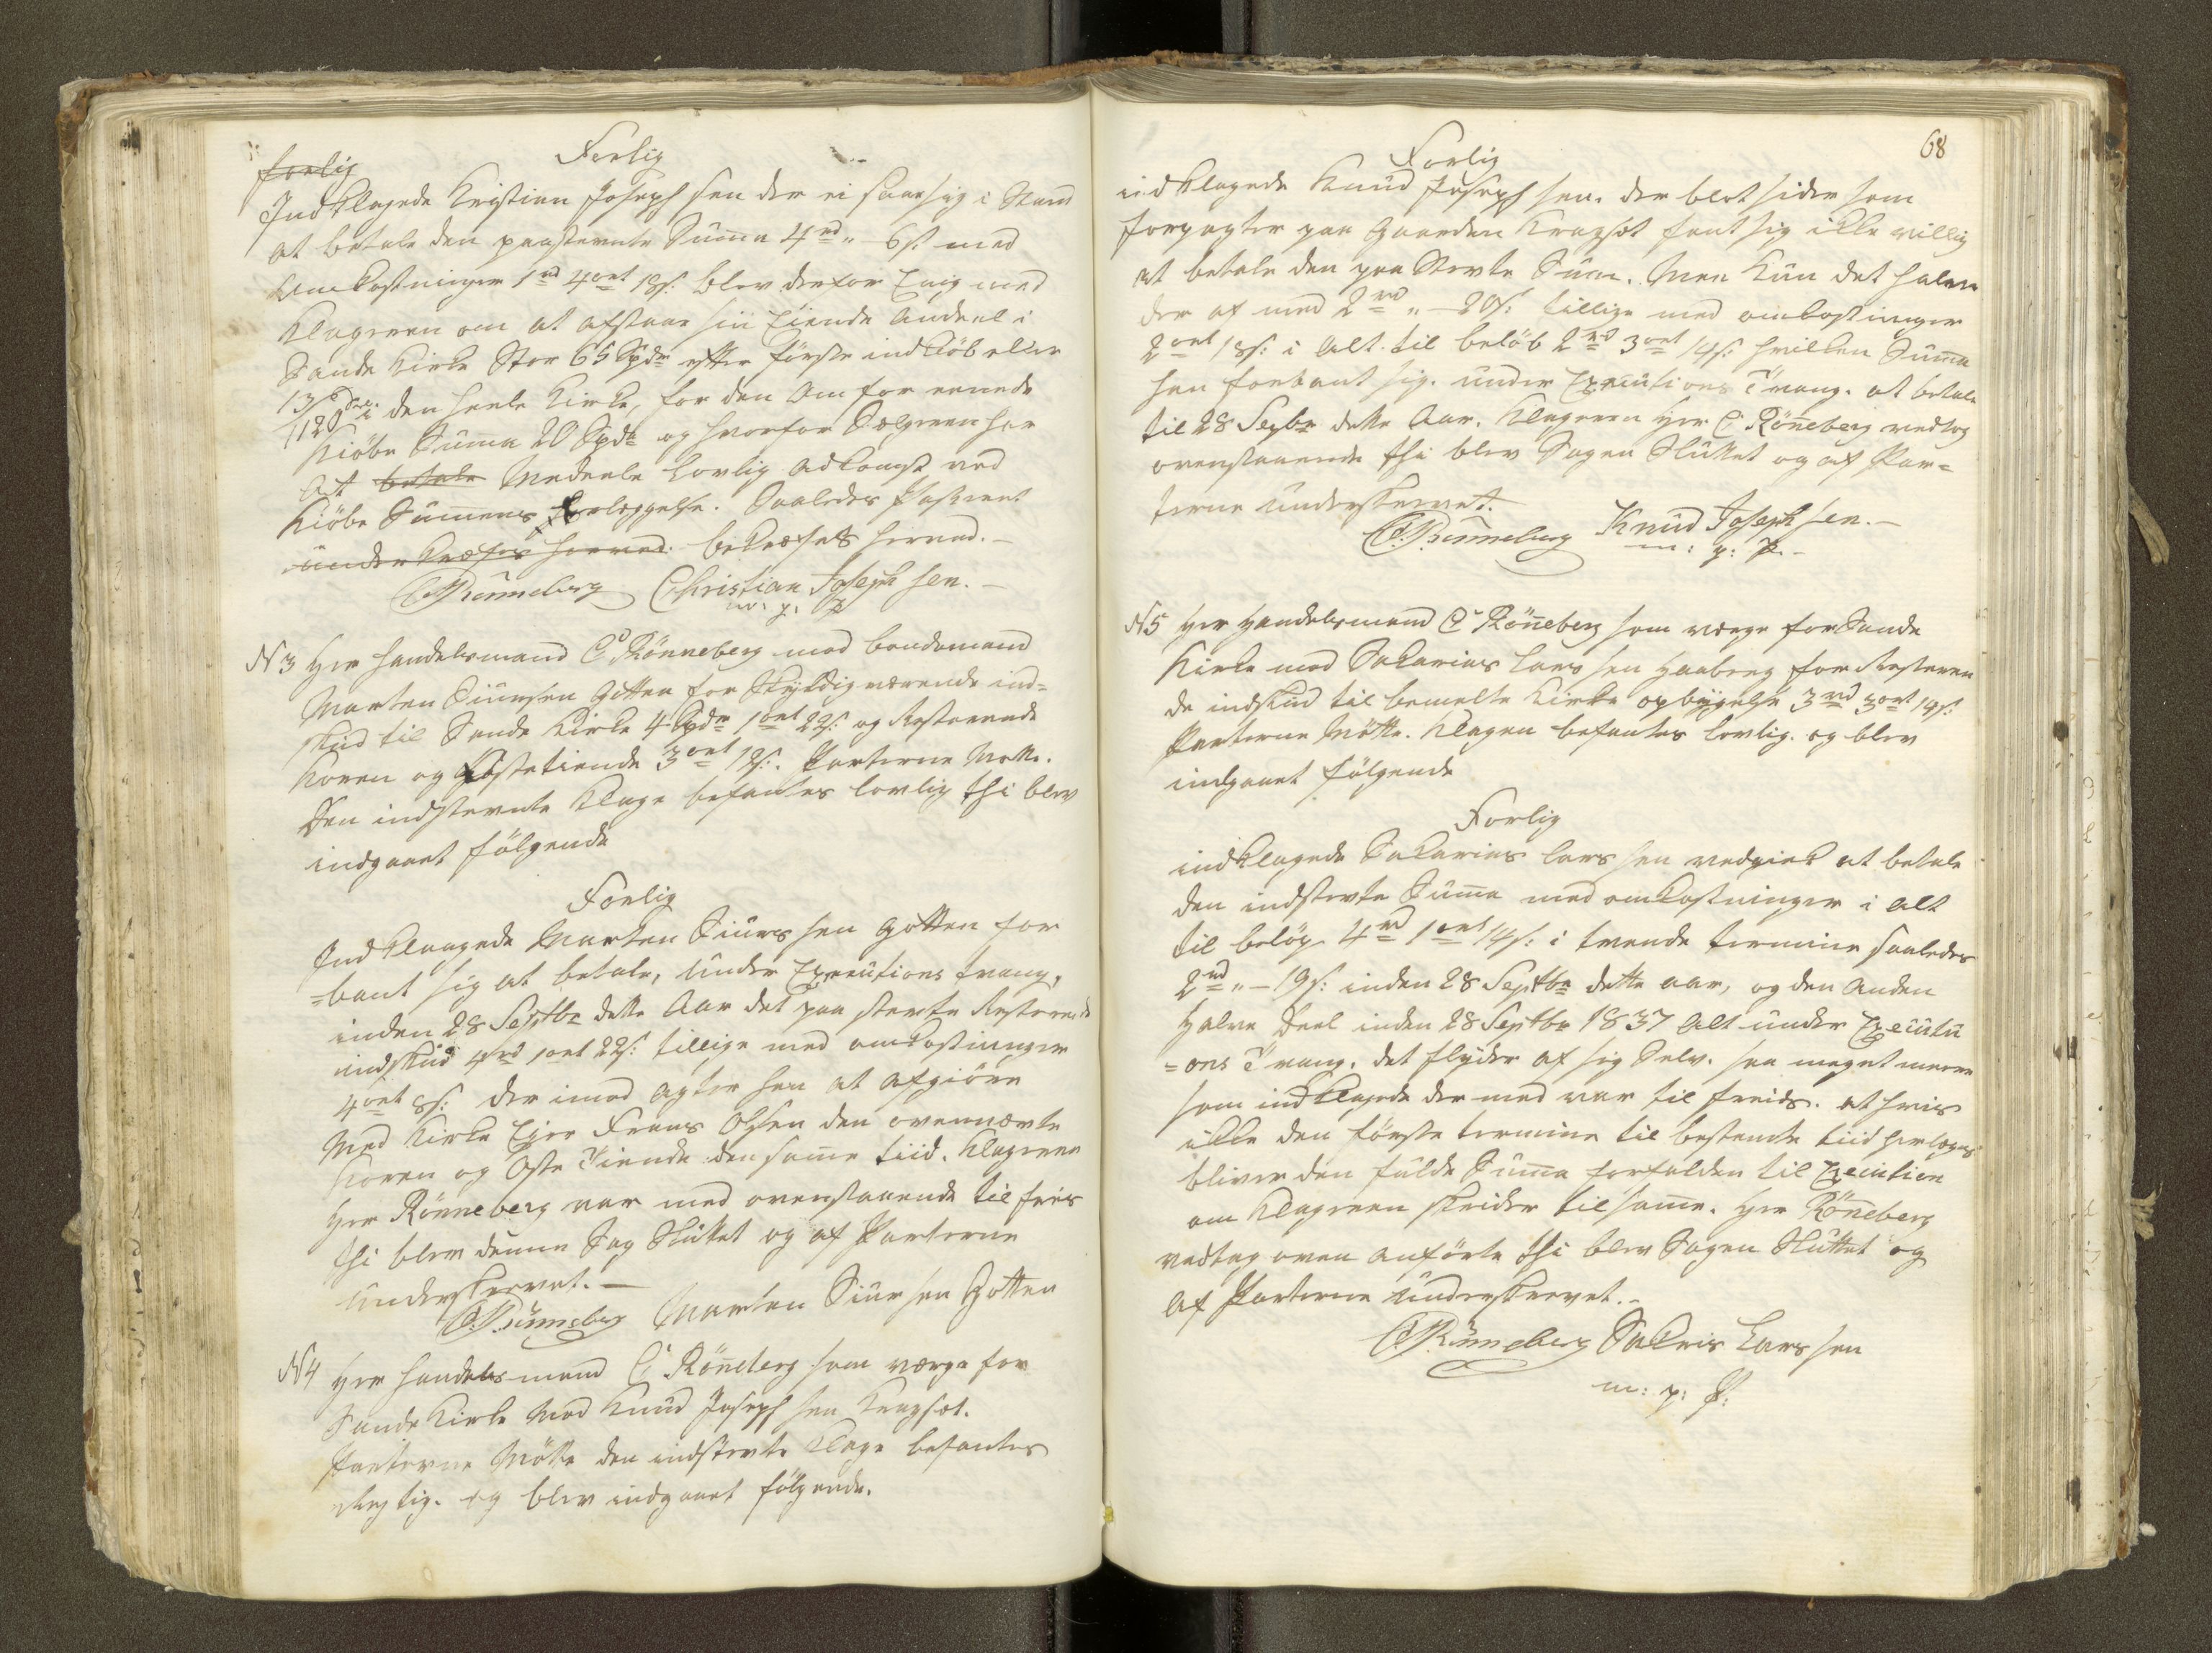 Forlig
forlig
Indklagede Kristian Joseph sen der ei saae sig i Stand
at betale den paastevnte Suma 4rd „ 6s. med
Omkostninger 1rd 4ort 18s. blev derfor Enig med
Klageren om at afstaae sin Eiende Andeel i
Sande Kirke Stor 65 Spdr efter første indkiøb eller
13/1120 Del i den heele Kirke, for den Om for enede
Kiøbe Suma 20 Spdr og hvorfor Sælgeren har
At betale Meddele lovlig Adkomst ved
Kiöbe Sumens Erlæggelse. Saaledes Passeret
under bekræftes herved. bekræftes herved.-
C Rönneberg Christian Joseph sen.-
m. p. P
N 3 Herr Handelsmand C Rönneberg mod bondemand
Marten Siursen Gotten for Skyldigværende ind=
skud til Sande Kirke 4 Spdr 1ort 22s. og Resterende
Koren og Ostetiende 3ort 18s. Parterne Møtte.
Den indstevnte Klage befantes lovlig thi blev
indgaaet følgende
Forlig
Indklagede Marten Siurs sen Gotten for
=bant sig at betale, under Executions tvang,
inden 28 Septbr dette Aar det paa stevte Resterende
indskud 4rd 1ort 22s: tillige med omkostninger
4ort 8s: der imod agter han at afgiöre
Med Kirke Eier Frans Olsen den ovennævte
Koren og Oste Tiende den same tiid. Klageren
Herr Rönneberg var med ovenstaaende til freds
thi blev denne Sag Sluttet og af Parterne
Underskrevet.-
C Rönneberg Marten Siursen Gotten
N 4 Herr Handelsmand C Röneberg som værge for
Sande Kirke Mod Knud Joseph sen Kragset.
Parterne Møtte den indstevte Klage befantes
rigtig. og blev indgaaet følgende.
68
Forlig
indklagede Knud Joseph sen. der blot sider som
forpagter paa Gaarden Kragset fant sig ikke villig
at betale den paa Stevte Sum. Men kun det halve
der af med 2rd „ - 20s: tillige med omkostninger
2ort 18s: i Alt til beløb 2rd 3ort 14s: hvilken Suma
han forbant sig. under Executions Tvang. at betale
til 28 Sepbr dette Aar. Klageren Herr C Röneberg vedtog
ovenstaaende thi blev Sagen Sluttet og af Par=
terne underskrevet.
C Rönneberg Knud Joseph sen.-
m: p: P.-
N 5 Herr Handelsmand C Röneberg som værge for Sande
Kirke mod Sakarias Lars sen Haaberg for Resteren
de indskud til bemelte Kirke opbygelse 3rd 3ort 14s:
Parterne Møtte. Klagen befantes lovlig. og blev
indgaaet følgende
Forlig
indklagede Sakarias Lars sen vedgiek at betale
den indstevte Suma med omkostninger i alt
til beløp 4rd 1ort 14s: i tvende termine saaledes
2rd „ - 19s: inden 28 Septbr dette aar, og den Anden
Halve Deel inden 28 Septbr 1837 Alt under Executi
=ons Tvang. det flyder af sig Selv. saa meget meere
som indklagede der med var til freids. at hvis
ikke den første termine til bestemte tiid erlægges
bliver den fulde Suma forfalden til Execution
om Klageren skrider til same. Herr Röneberg
vedtog oven anførte thi blev Sagen Sluttet og
af Parterne underskrevet.-
C Rönneberg Sakris Lars sen
m: p: P: